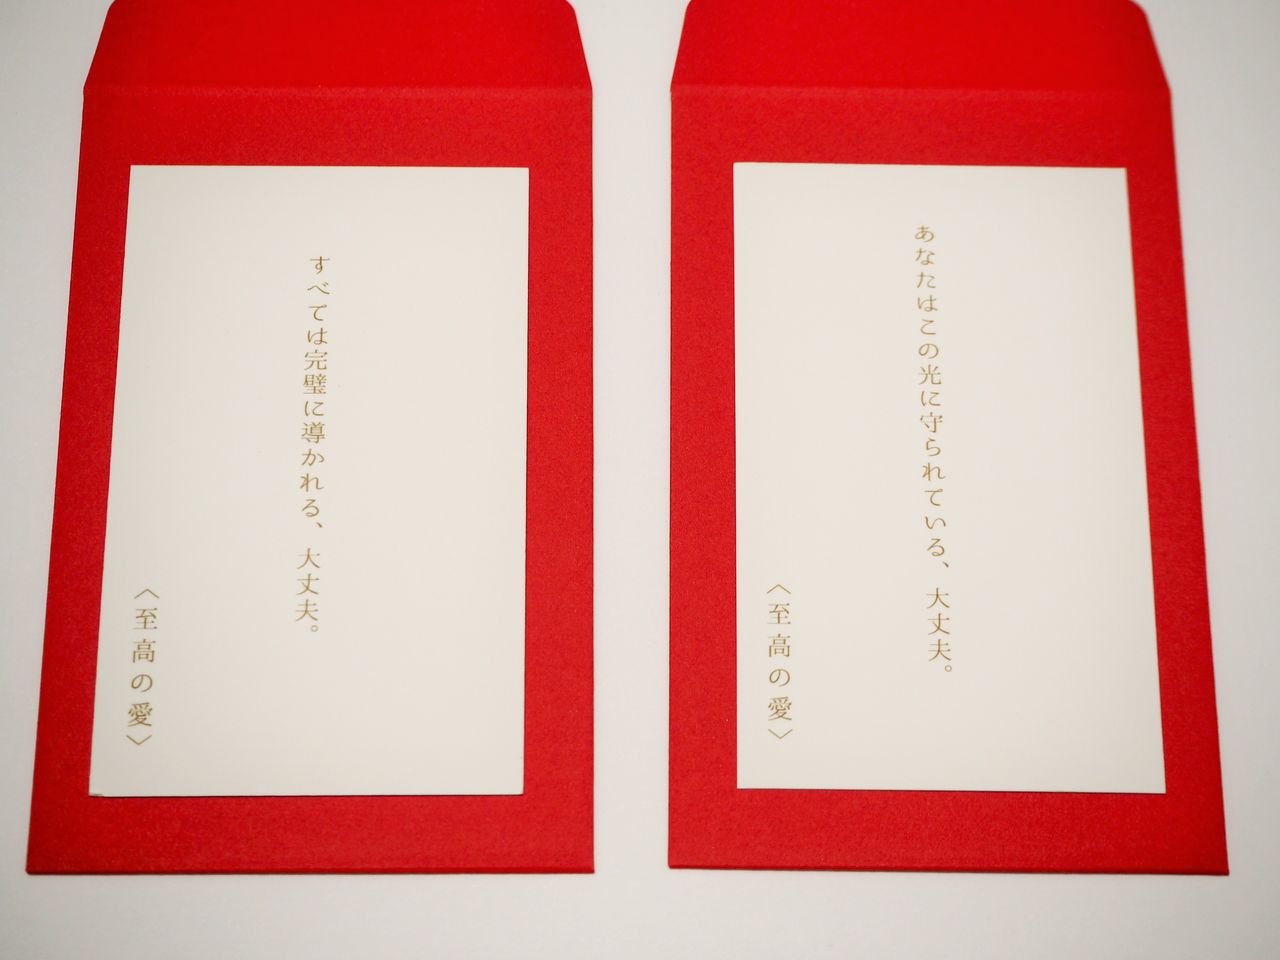 すべては完璧に導かれる、大丈夫。
〈至高の愛〉
あなたはこの光に守られている、大丈夫。
〈至高の愛〉